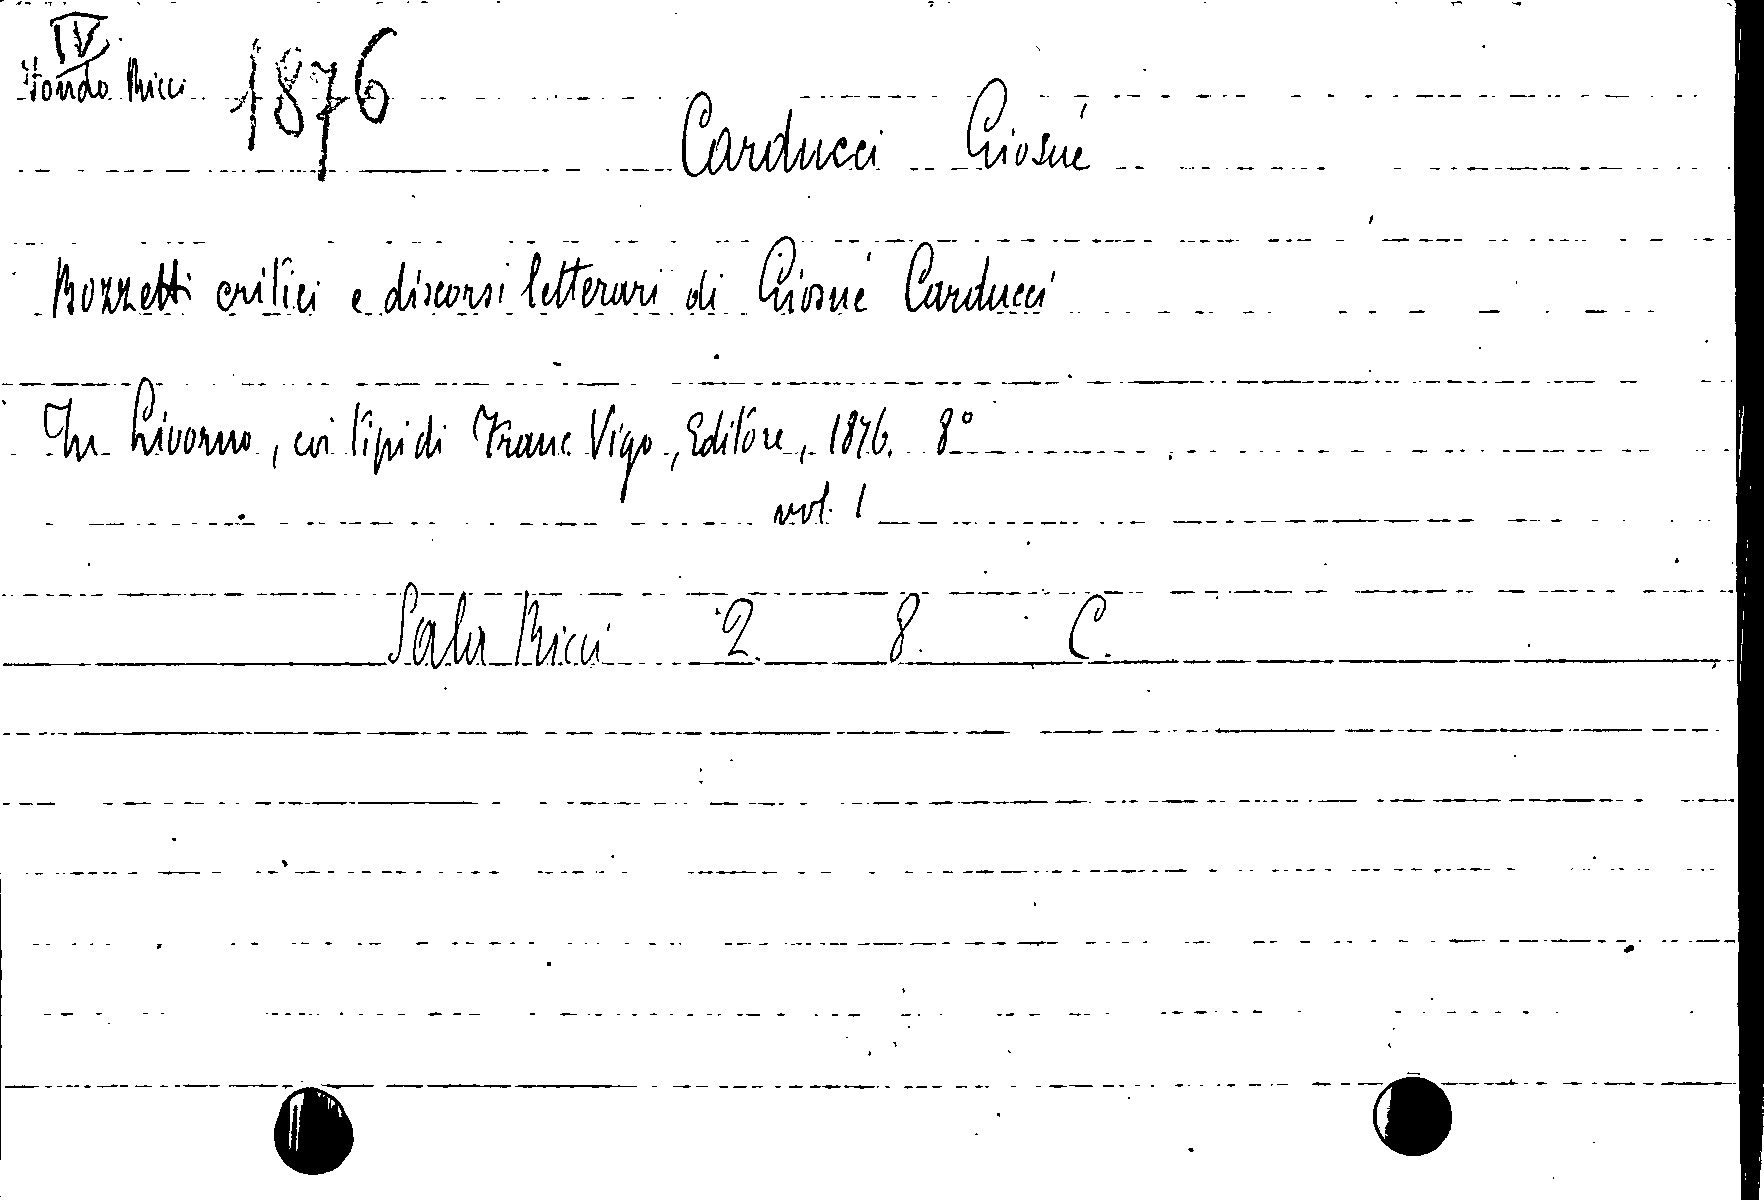 IV
Fondo Ricci 1876
Carducci Giosué
Bozzetti critici e discorsi letterari di Giosué Carducci
In Livorno, coi tipi di Franc. Vigo, Editore, 1876. 8°
vol. 1
Sala Ricci 2. 8. C.